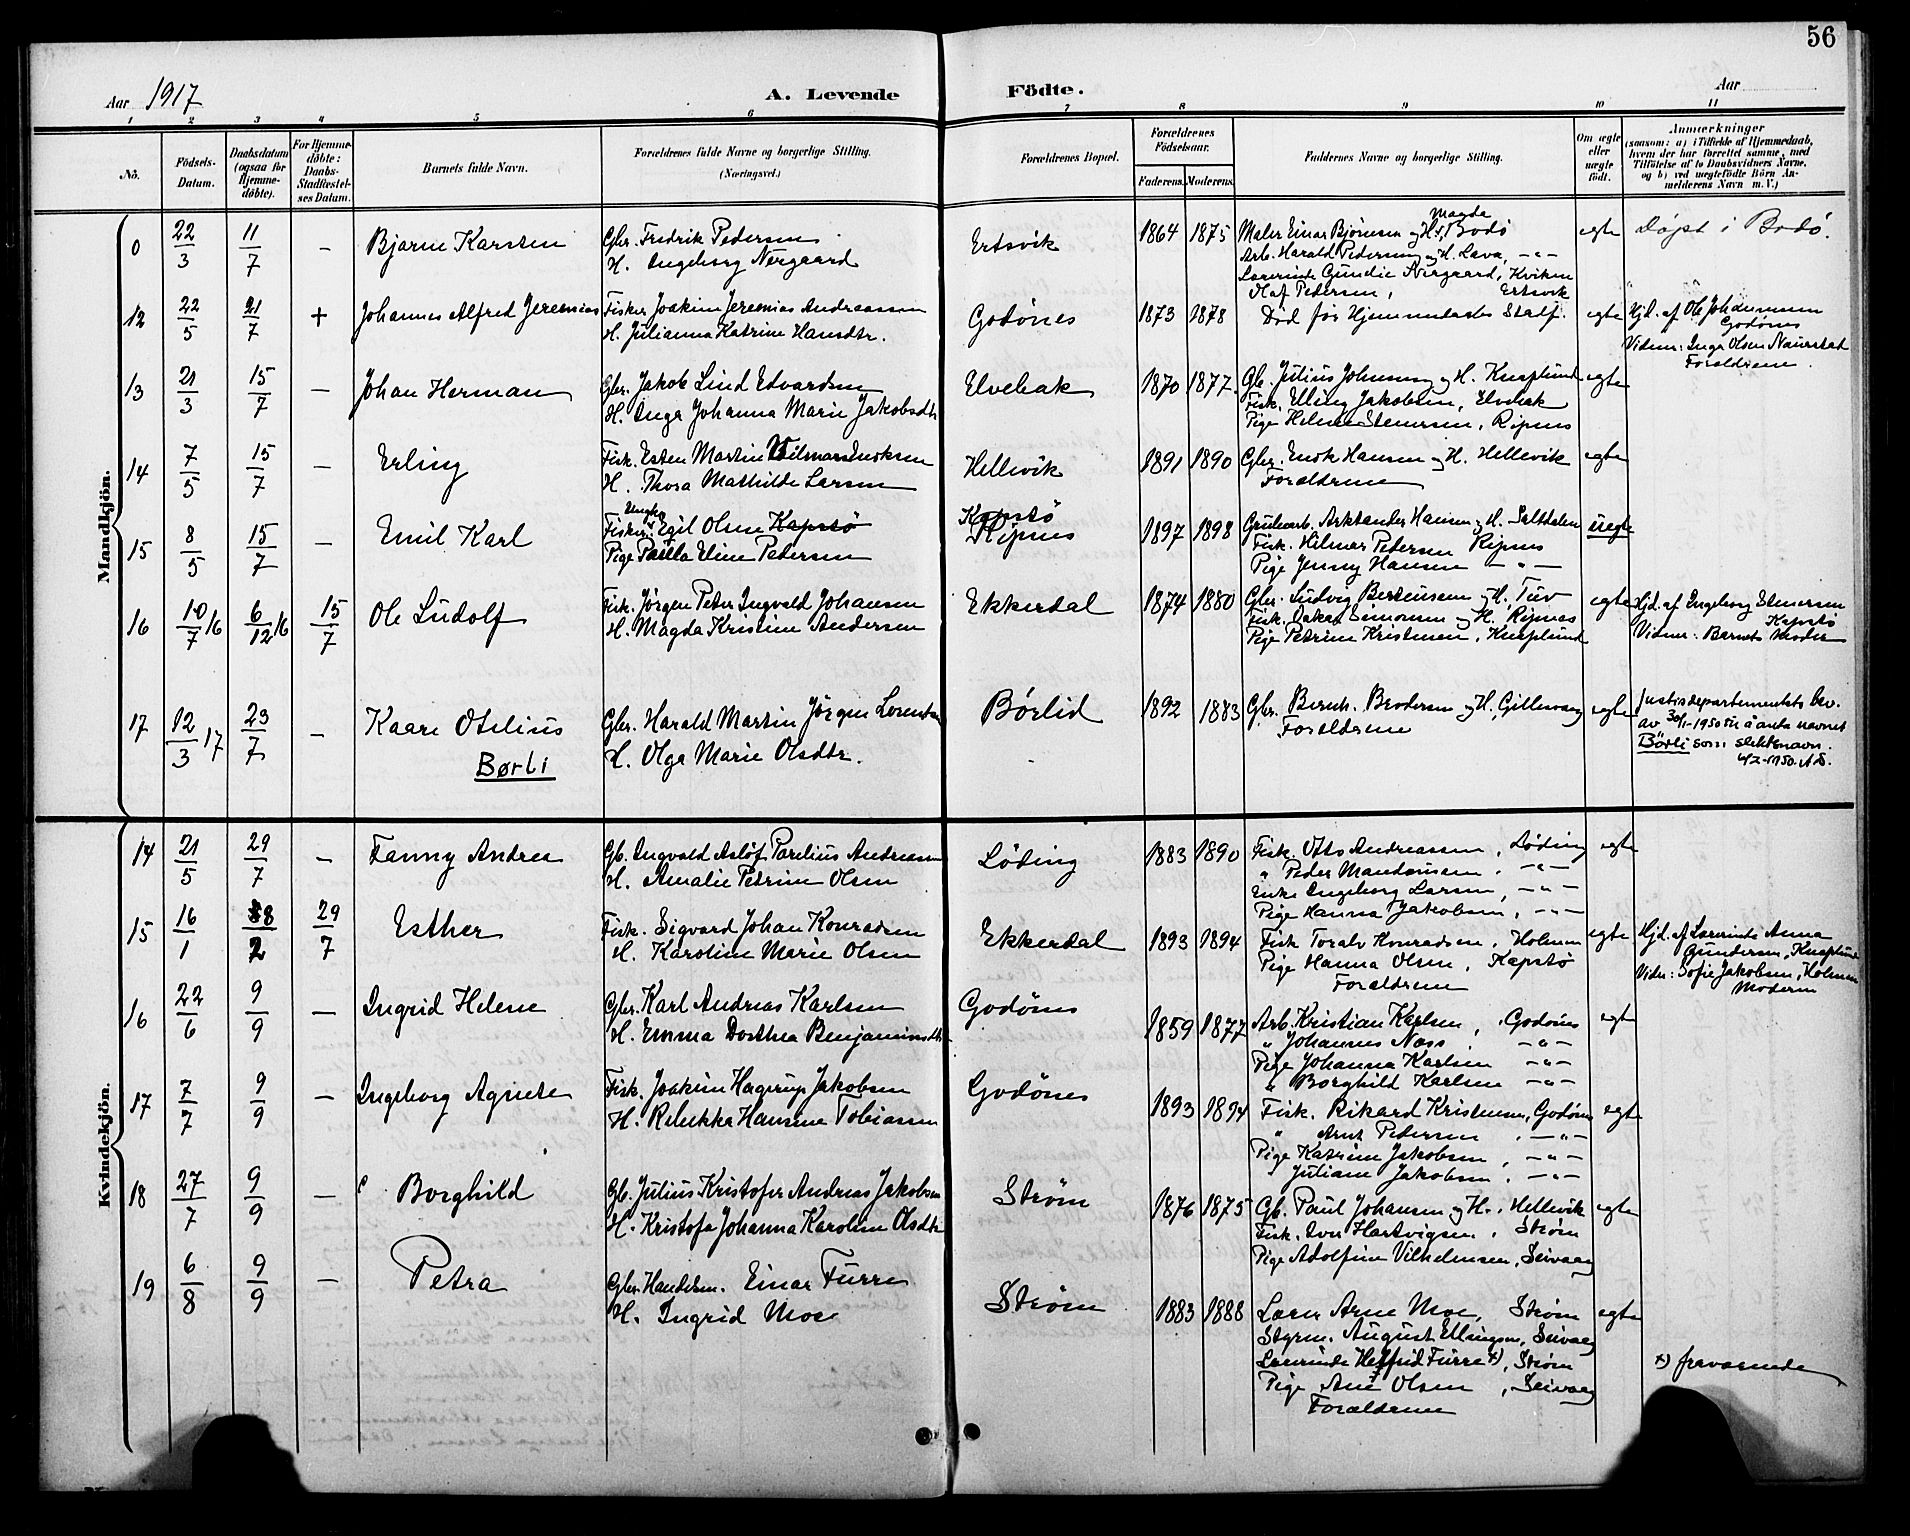 56
Aar 1917
A. Levende Födte.
Aar
1 2 3 4 5 6 7 8 9 10 11
No.
Födsels-Datum.
Daabsdatum (ogsaa for Hjemmedöbte).
For Hjemmedöbte: Daabs-Stadfæstelses Datum.
Barnets fulde Navn.
Forældrenes fulde Navne og borgerlige Stilling. (Næringsvei.)
Forældrenes Bopæl.
Forældrenes Födselsaar.
Faderens. Moderens.
Faddernes Navne og borgerlige Stilling.
Om ægte eller uægte födt.
Anmærkninger
(saasom: a) i Tilfælde af Hjemmedaab, hvem der har forrettet samme, med Tilföielse af to Daabsvidners Navne, og b) ved uægtefödte Börn Anmelderens Navn m. V.)
Mandkjön.
0 22/3 11/7 – Bjarne Karsten
Gbr. Fredrik Pedersen
H. Ingeborg Nergaard
Ertsvik 1864 1875
Maler Einar Bjørnsen og H. Magda, Bodø
Arb. Harald Pedersen og H. Lava, –"–
Lærerinde Gundie Nergaard, Kvikne
Olaf Pedersen, Ertsvik
egte Døpt i Bodø.
12 22/5 21/7 + Johannes Alfred Jeremias
Fisker Joakim Jeremias Andreassen
H. Julianna Katrine Hansdtr.
Godönes 1873 1878
Död før Hjemmedaabs Stadf.
egte Hjd. af Ole Johannesen
Godönes
Vidner: Inga Olsen Naurstad
Forældrene.
13 21/3 15/7 – Johan Herman
Gbr. Jakob Lind Edvardsen
H. Inga Johanna Marie Jakobsdtr
Elvebak 1870 1877.
Gb. Julius Johnsen og H. Knaplund
Fisk. Elling Jakobsen, Elvebak
Pige Helene Stenersen, Ripnes
egte
14 7/5 15/7 – Erling
Fisk. Esten Martin Vilmar Enoksen
H. Thora Mathilde Larsen
Hellevik 1891 1890
Gbr. Enok Hansen og H. Hellevik
Forældrene
egte
15 8/5 15/7 – Emil Karl
Ungkar
Fisker Egil Olsen Kapstø
Pige Paula Eline Petersen
Kapstø
Ripnes 1897 1898
Grubearb. Arktander Hansen og H. Saltdalen
Fisk. Hilmar Petersen Ripnes
Pige Jenny Hansen –"–
uegte
16 10/7 16 6/12 16 15/7 Ole Ludolf
Fisk. Jörgen Peter Ingvald Johansen
H. Magda Kristine Andersen
Ekkerdal 1874 1880
Gbr. Ludvig Berteusen og H., Tuv
Fisk. Oskar Simonsen og H. Ripnes
Pige Petrine Kristensen, Knaplund
egte Hjd. af Engeborg Stenersen
Kapstø
Vidner: Barnets Moder
17 12/3 17 23/7 – Kaare Otelius
Børli
Gbr. Harald Martin Jörgen Lorentsen
H. Olga Marie Olsdtr.
Børlid 1892 1883
Gbr. Bernh. Brodersen og H., Gillesvaag
Forældrene
egte Justisdepartementets bev.
av 30/1-1950 til å anta navnet
Børli som slektsnavn.
4/2-1950. AS.
Kvindekjön.
14 21/5 29/7 – Fanny Andrea
Gb. Ingvald Asløf Parelius Andreassen
H. Amalie Petrine Olsen
Löding 1883 1890
Fisk. Otto Andreassen, Löding
" Peder Mandorisen. –"–
Enke Ingeborg Larsen, –"–
Pige Hanna Jakobsen, –"–
egte
15 16/1 8/2 29/7 Esther
Fisk. Sigvard Johan Konradsen
H. Karoline Marie Olsen
Ekkerdal 1893 1894
Fisk Toralv Konradsen, Holmen
Pige Hanna Olsen, Kapstø
Forældrene
egte Hjd. af Lærerinde Anna
Gundersen, Knaplund
Vidn: Sofie Jakobsen, Holmen
Moderen
16 22/6 9/9 – Ingrid Helene
Gbr. Karl Andreas Karlsen
H. Emma Dorthea Benjaminsdtr
Godönes 1859 1877
Arb. Kristian Karlsen, Godönes
" Johannes Næss –"–
Pige Johanna Karlsen –"–
" Borghild Karlsen –"–
egte
17 7/7 9/9 – Ingeborg Agnete
Fisk. Joakim Hagerup Jakobsen
H. Rebekka Hansine Tobiassen
Godönes 1893 1894
Fisk. Rikard Kristensen, Godönes
" Arnt Pedersen –"–
Pige Katrine Jakobsen, –"–
" Juliane Jakobsen. –"–
egte
18 27/7 9/9 – Borghild
Gb. Julius Kristofer Andreas Jakobsen
H. Kristofa Johanna Karoline Olsdtr
Strøm 1876 1875
Gb. Paul Johansen og H., Hellevik
Fisk. Iver Hartvigsen. Strøm
Pige Adolfine Vilhelmsen, Seivaag
egte
19 6/8 9/9 – Petra
Gbr. Handelsm. Einar Furre
H. Ingrid Moe
Strøm 1883 1888
Lærer Arne Moe, Strøm
Styrm. August Ellingsen, Seivaag
Lærerinde Helfrid Furre x), Strøm
Pige Ane Olsen, Seivaag
Forældrene
egte
x) fraværende